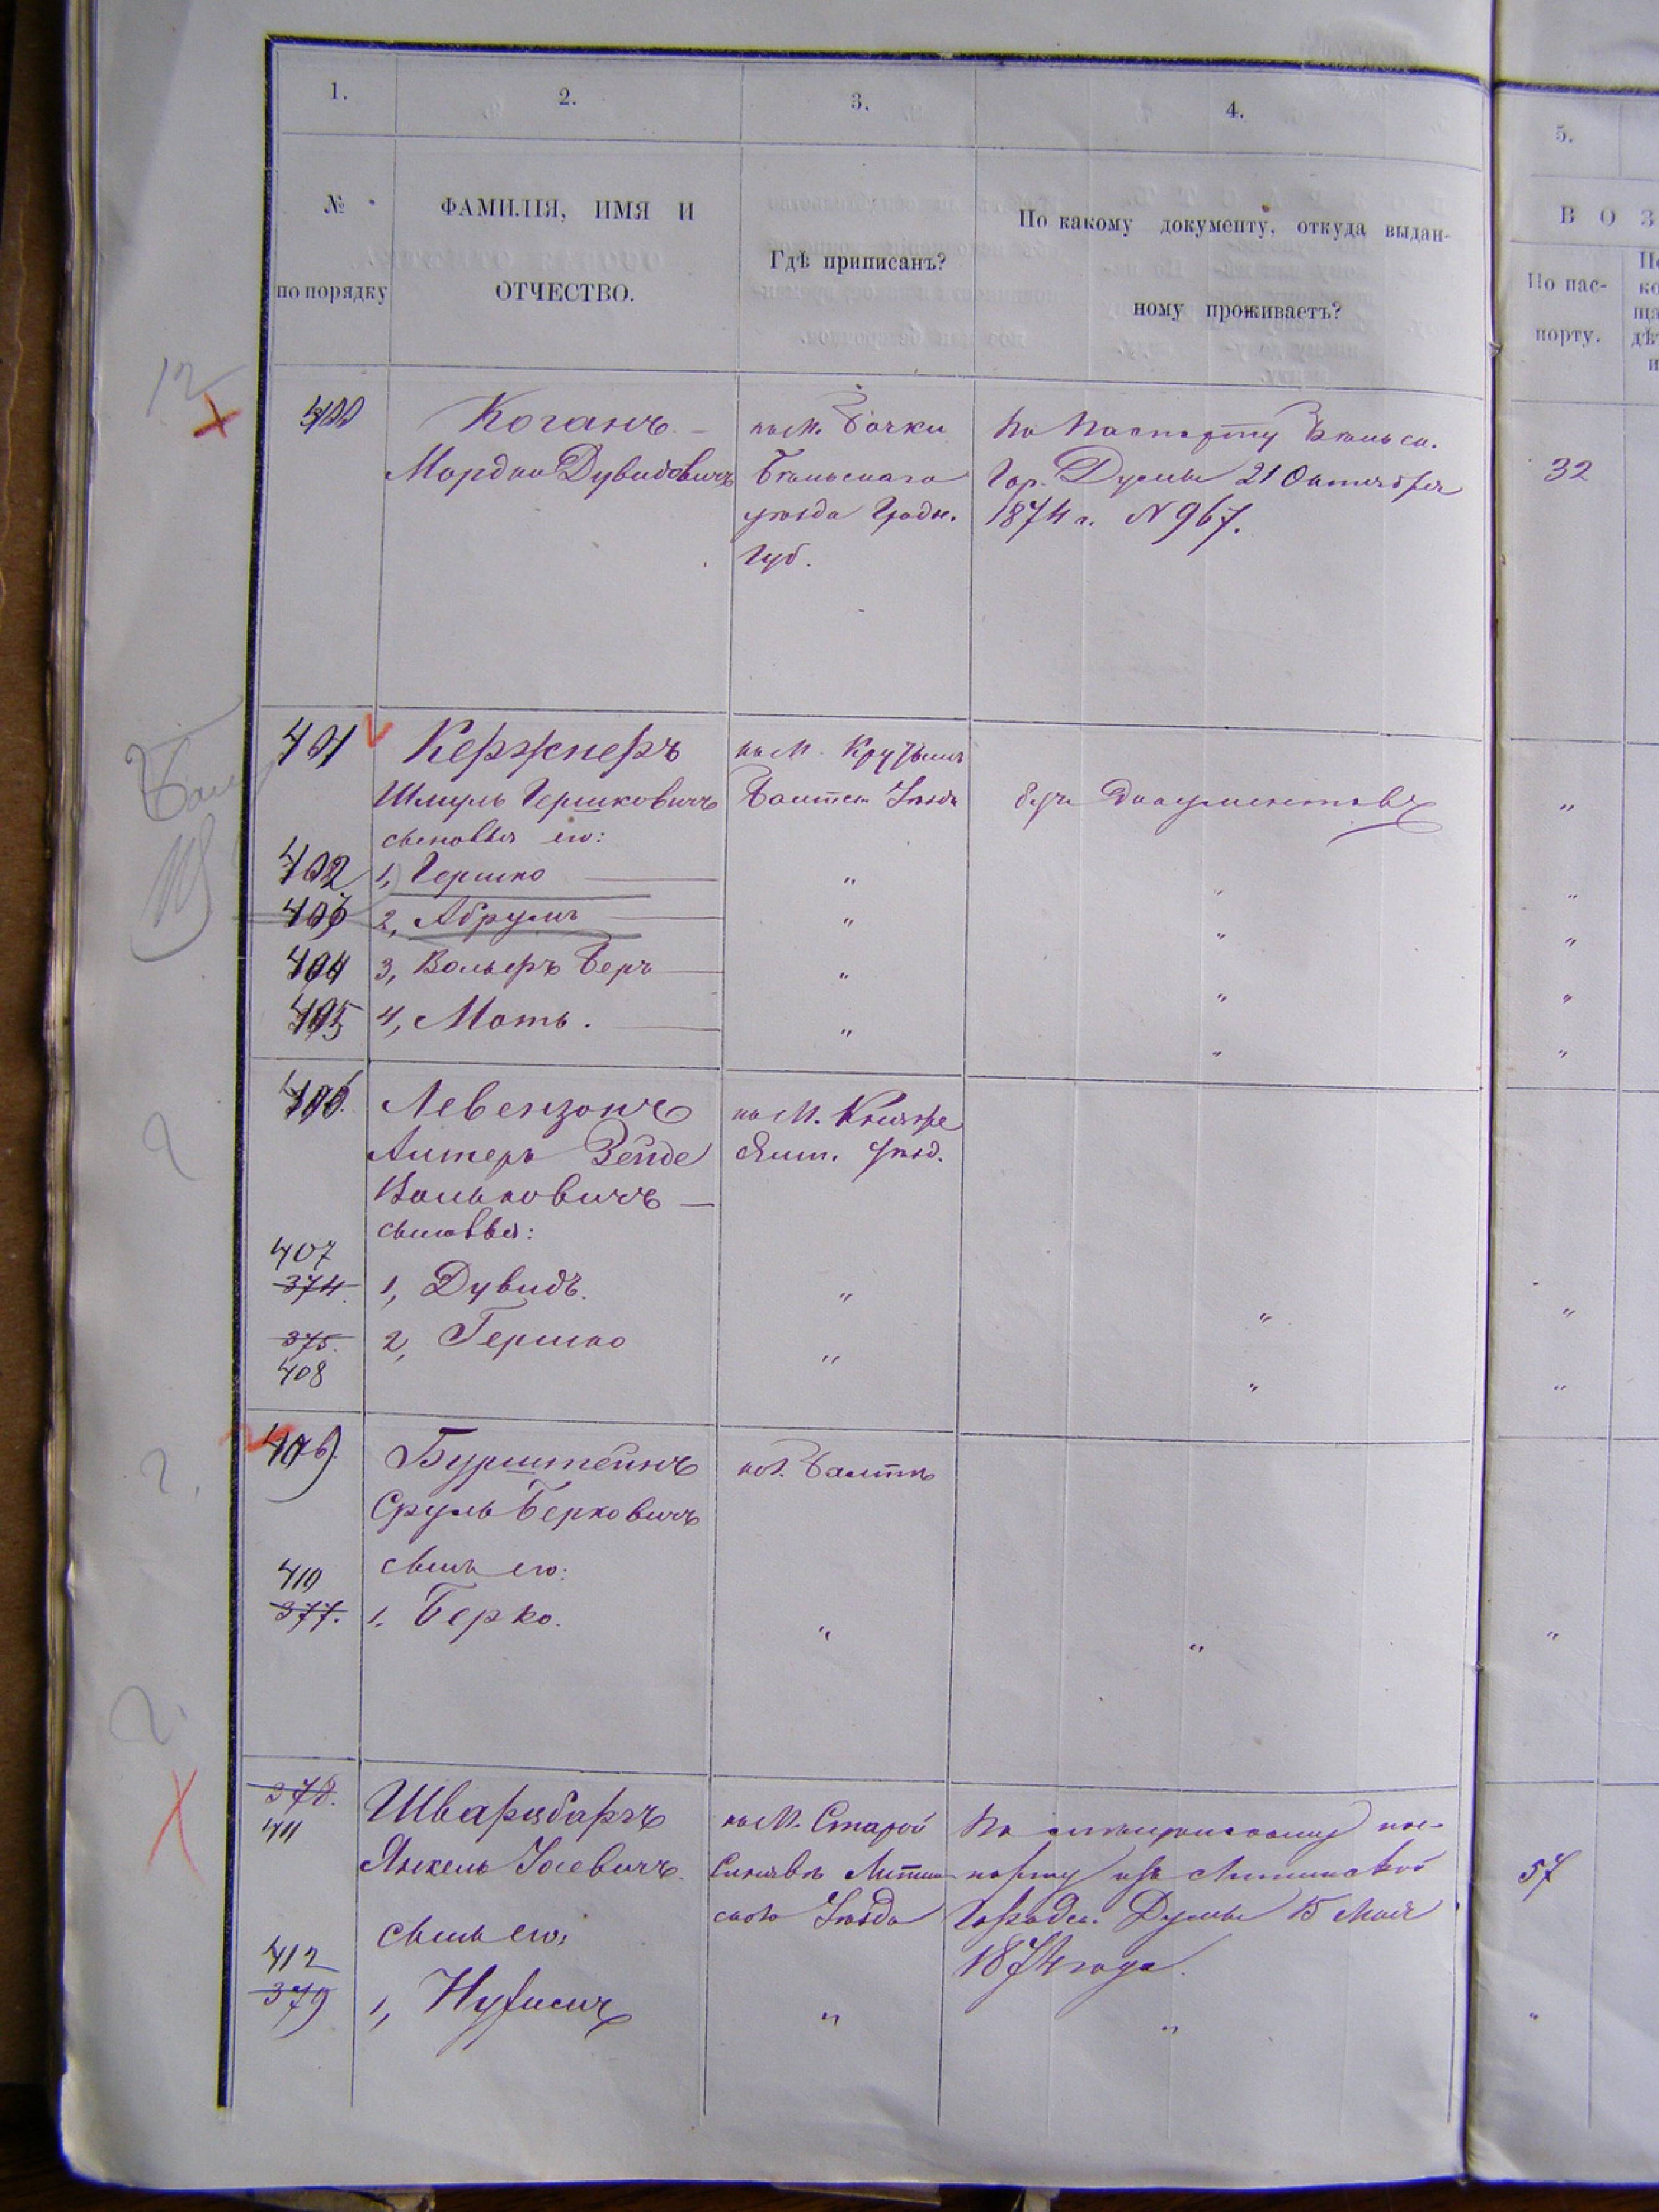 1. 2. 3. 4. 5.
№ по порядку
ФАМИЛІЯ, ИМЯ И ОТЧЕСТВО.
Гдѣ приписанъ?
По какому документу, откуда выдан-
ному проживаетъ?
В О З
По пас-
порту.
12
400 Коганъ
Мордко Дувидовичъ
въ М. Бочки
Бѣльскаго
уѣзда Гродн.
Губ.
По паспорту Бѣльск.
Гор. Думы 21 Октября
1874 г. N 967.
32
401 Кержнеръ
Шмуль Гершковичъ
сыновья его:
въ М.
Балтск. Уѣзда
безъ документовъ
"
402 1, Гершко " " "
403 2, Абрумъ " " "
404 3, Беръ " " "
405 4, Моть. " " "
406. Левензонъ
Алтеръ Зейде
Вольковичъ
сыновья:
въ М. Княже
уѣзд.
407
374. 1, Дувидъ. " " "
375. 2, Гершко " " "
408
409 Бурштейнъ
Сруль Берковичъ
сынъ его:
въ Балтѣ
410
377. 1. Берко. " " "
378.
411
Шварцбаргъ
Янкель Іосевичъ.
сынъ его:
въ М. Старой
Синявѣ Литин-
скаго Уѣзда
По пас-
порту изъ Литинской
Городск. Думы 15 Мая
1874 года.
57
412
379 1, Нухимъ " " "